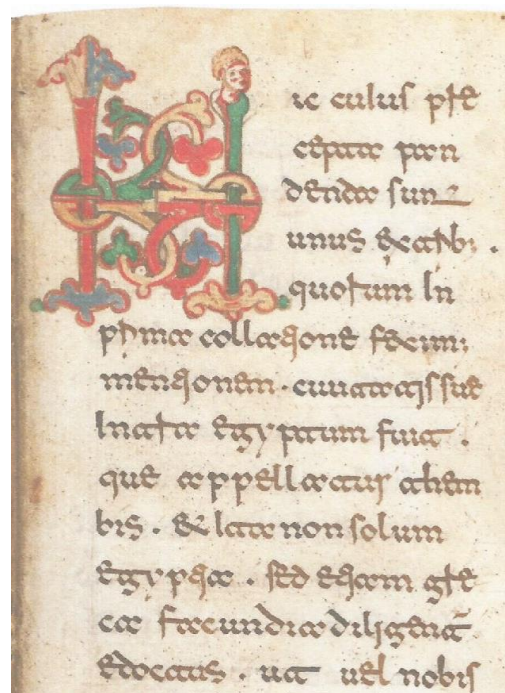 Hic cuius pre
cepta pan
denda sunt
unus e trib; .
quorum in
prima collatione fecim;
mentionem . ciuitatis sue
intra egyptum fuit .
que appellatur athem
bis . & ita non solum
egyptia . sed etiam gre
ca facundia diligent̄
edoctus . ut uel nobis